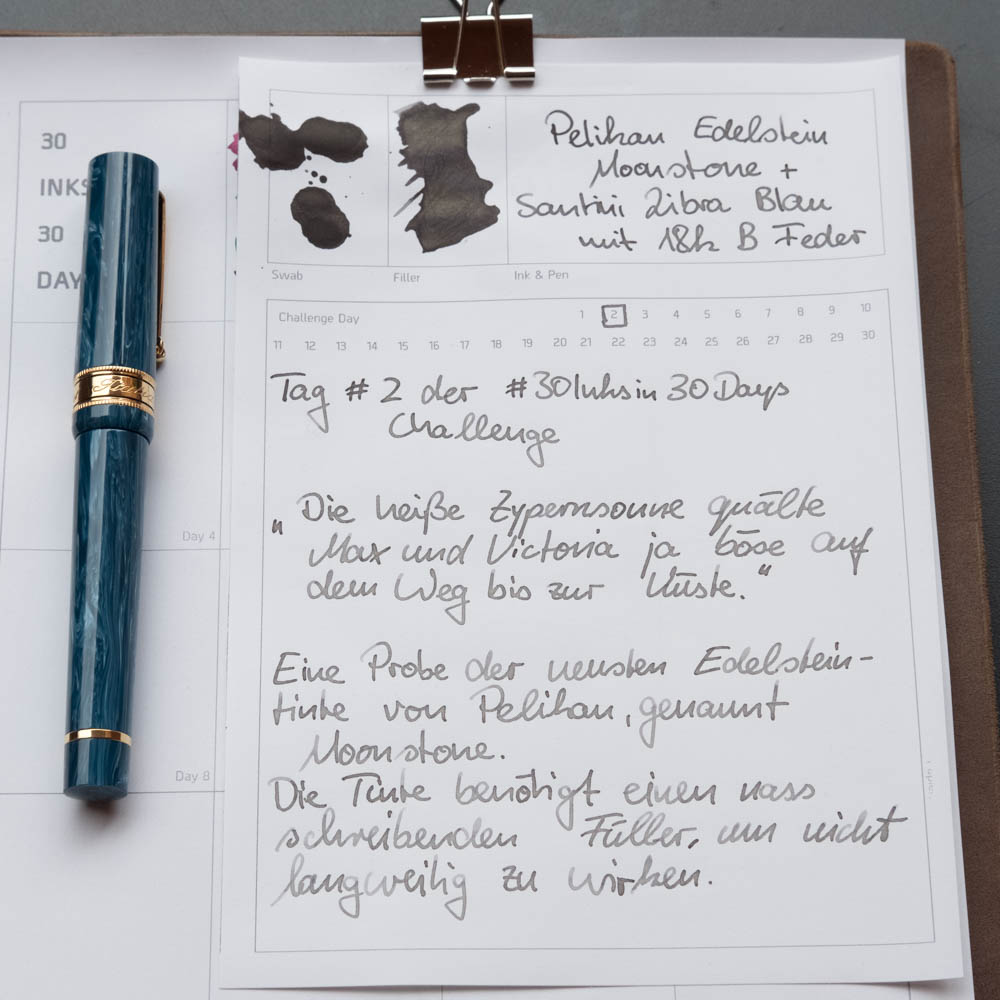 30
INKS
30
DAY
Day 4
Day 8
Pelikan Edelstein
Moonstone +
Santini Libra Blau
mit 18k B Feder
Swab
Filler
Ink & Pen
Challenge Day
1 2 3 4 5 6 7 8 9 10
11 12 13 14 15 16 17 18 19 20 21 22 23 24 25 26 27 28 29 30
Tag #2 der #30Inksin30Days
Challenge
„Die heiße Zypernsonne quälte
Max und Victoria ja böse auf
dem Weg bis zur Küste.“
Eine Probe der neusten Edelstein-
tinte von Pelikan, genannt
Moonstone.
Die Tinte benötigt einen nass
schreibenden Füller, um nicht
langweilig zu wirken.